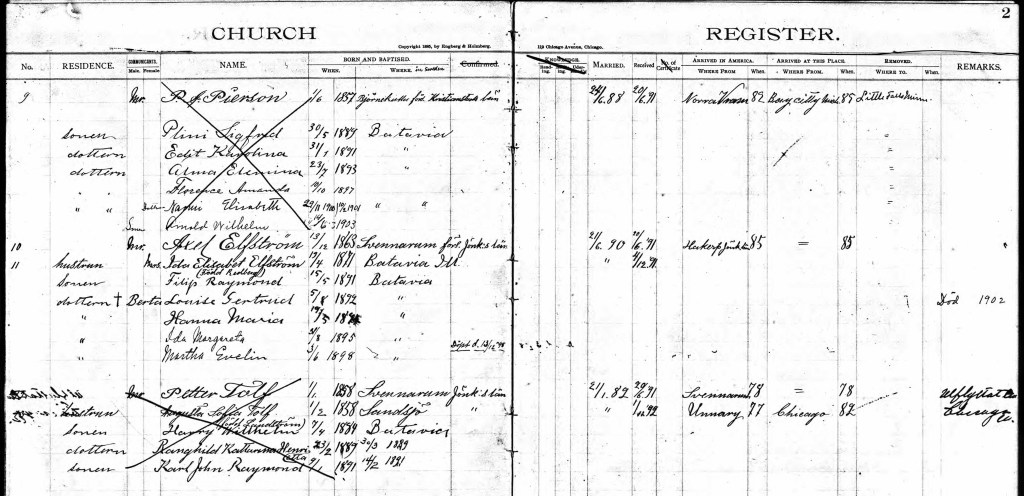 2
CHURCH REGISTER.
Copyright 1893, by Engberg & Holmberg. 119 Chicago Avenue, Chicago.
No. RESIDENCE. COMMUNICANTS. Male. Female NAME. BORN AND BAPTISED. WHEN. WHERE. in Sweden Confirmed. KNOWLEDGE. MARRIED. Received No. of Certificate ARRIVED IN AMERICA. WHERE FROM When. ARRIVED AT THIS PLACE. WHERE FROM. When. REMOVED. WHERE TO. When. REMARKS.
9 Mr. P. J. Pierson 1/6 1857 Kristianstads län 24/6 88 20/6 91 Norra 82 Bay citty Mich 85 Little Falls Minn
sonen Plini Sigfrid 30/5 1889 Batavia "
dottern Edit Karolina 31/7 1891 " "
dottern Alma Elemina 23/7 1893 "
" " Florence Amanda 10/10 1897 "
Dotter Naomi Elisabeth 29/11 1900 1901 " " "
Sonen Arnold Wilhelm 1903
10 Mr. Axel Elfström 13/12 1863 Svennarum förs. Jönk.s län 21/6 90 20/6 91 85 = 85 "
11 hustrun Mrs. Ida Elisabet Elfström 17/4 1871 Batavia Ill. " 4/12 91
(född Redberg)
sonen Filip Raymond 15/5 1891 Batavia
dottern † Berta Louise Gertrud 5/8 1892 " Död 1902
" Hanna Maria "
" Ida Margareta 31/8 1895
" Martha Evelin 3/6 1898 " Döpt d. 13/12 98
Mr. Petter Tolf 1/1 1858 Svennarum Jönk.s län 21/1 82 20/6 91 Svennarum 78 = 78 Utflyttat
hustrun Augusta Sofia Tolf 1/2 1858 Sandsjö " " 1/12 92 Unnary 77 Chicago 82 Chicago
sonen Harry Wilhelm 7/4 Batavia
dottern Ranghild Katharina Henri etta 23/2 1889 30/3 1889
sonen Karl John Raymond 9/1 1891 14/2 1891